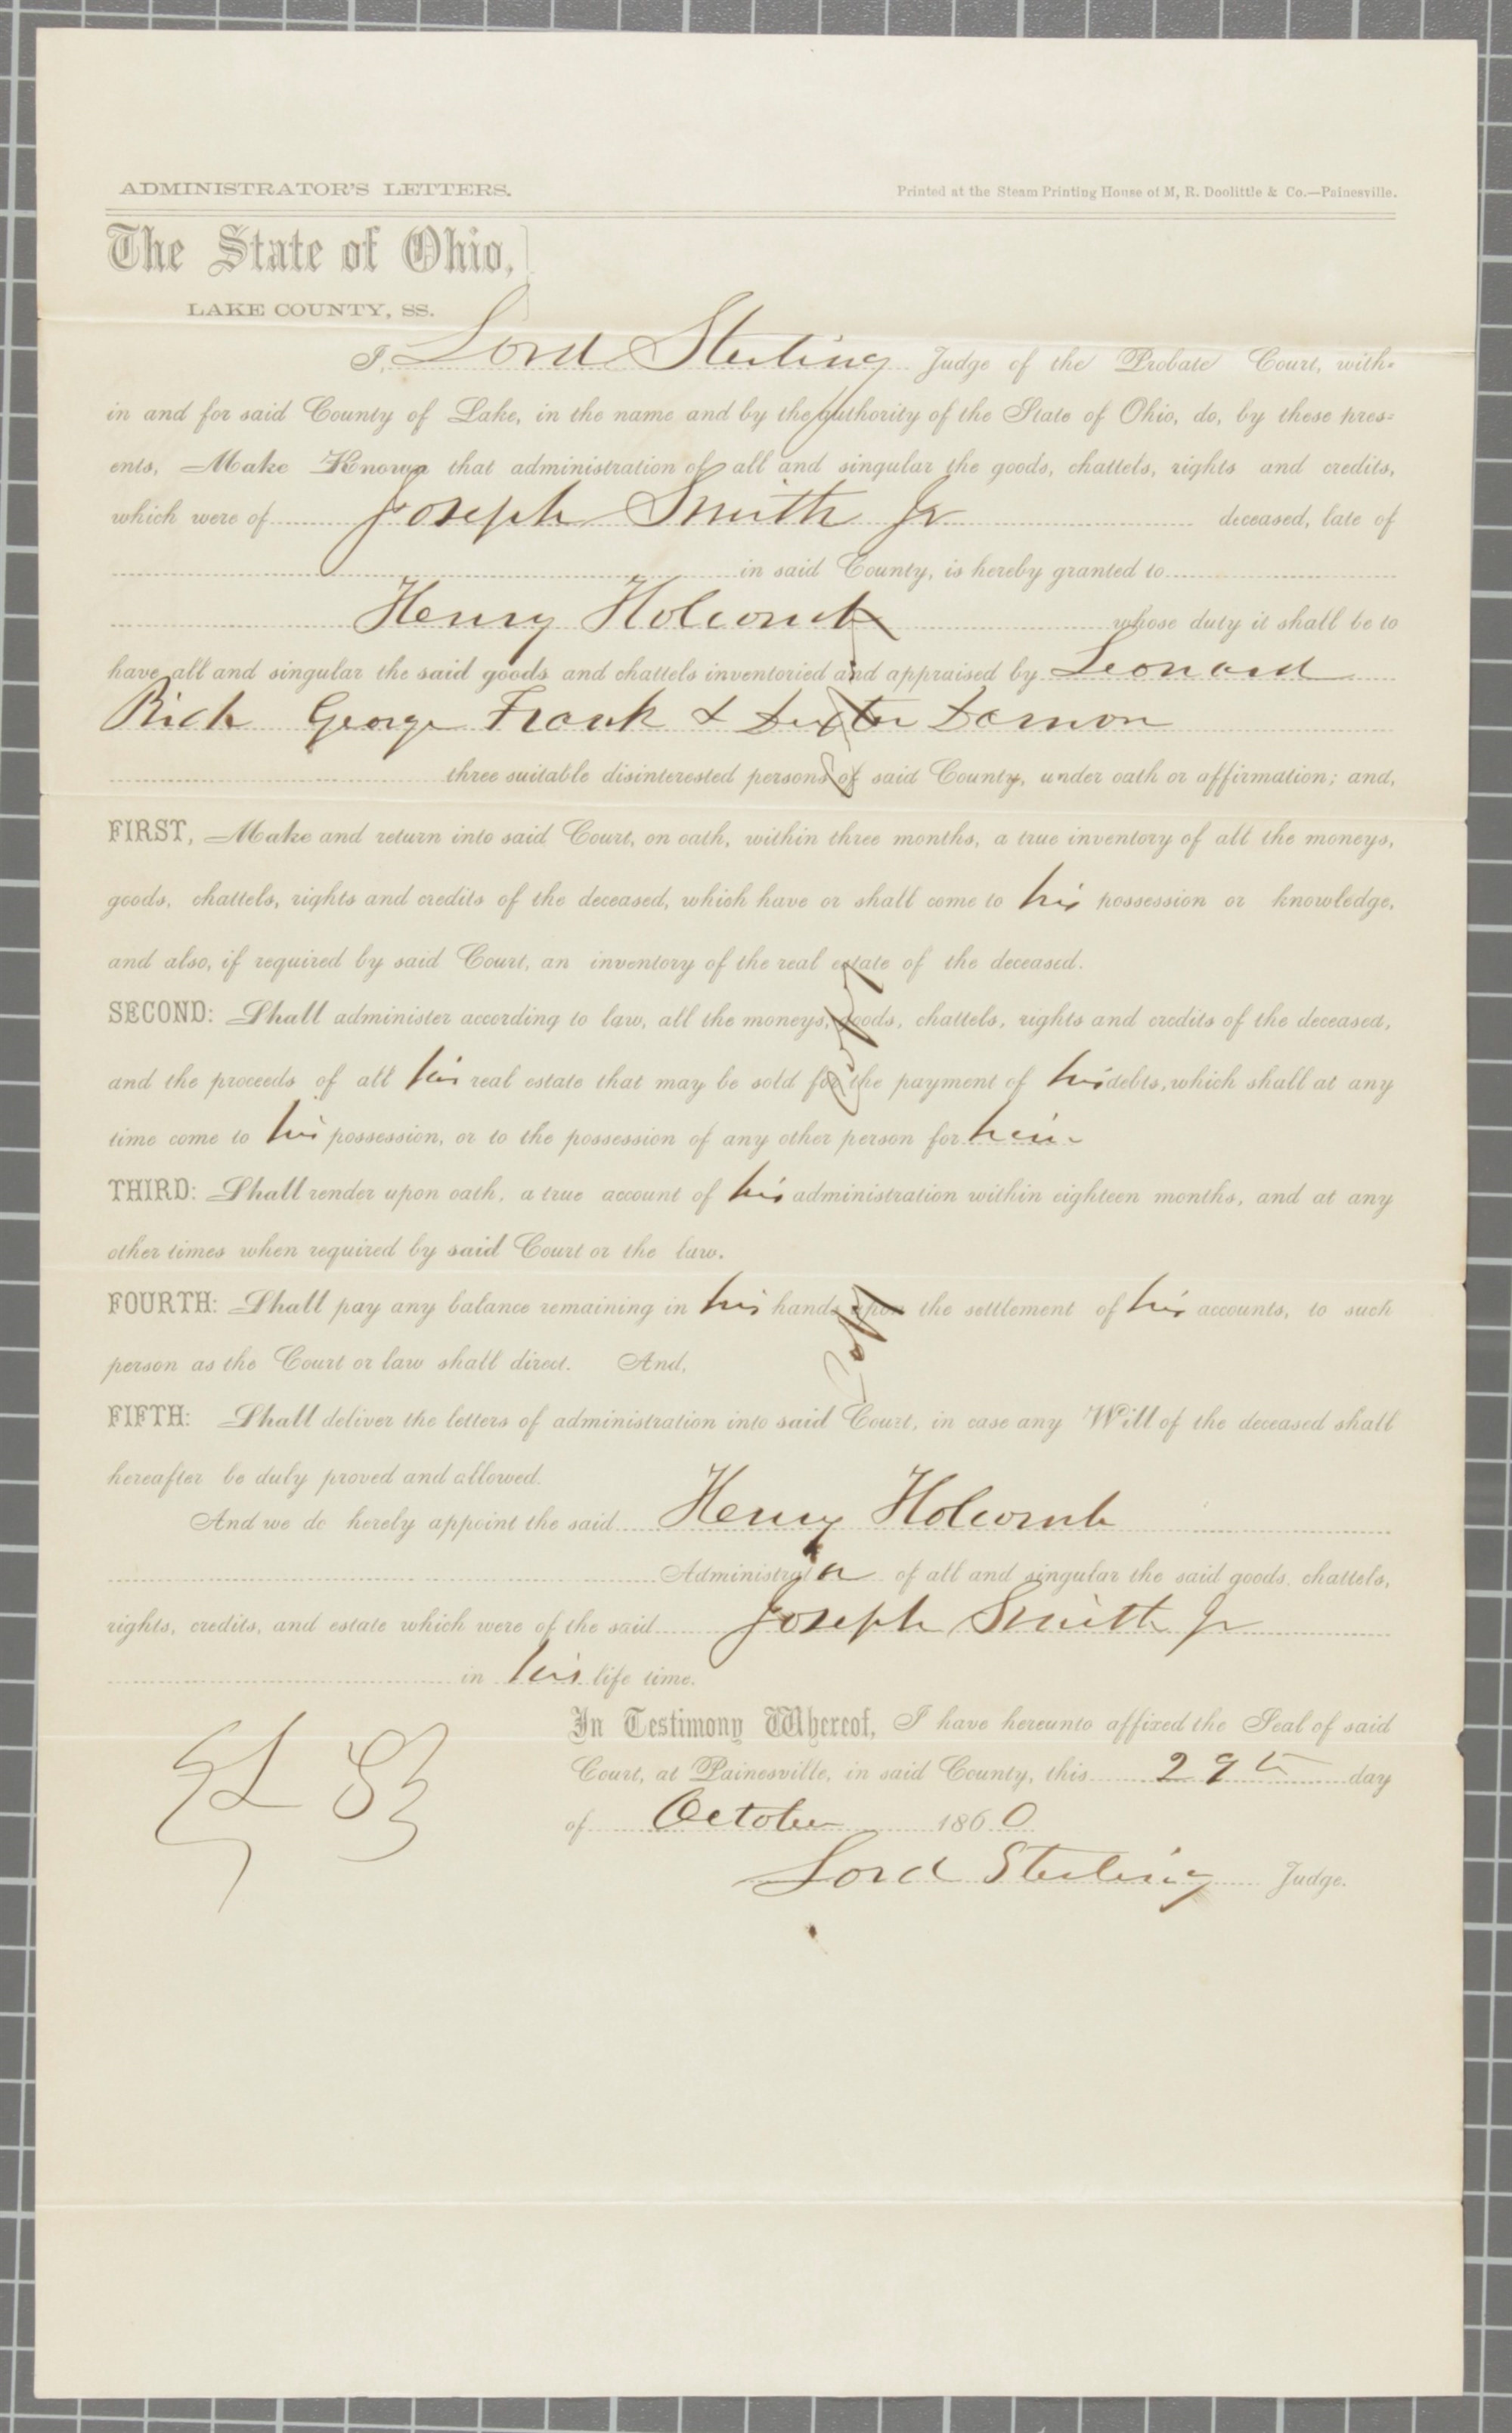 ADMINISTRATOR'S LETTERS.
Printed at the Steam Printing House of M, R. Doolittle & Co.—Painesville.
The State of Ohio,
LAKE COUNTY, SS.
I, Lord Sterling Judge of the Probate Court, with-
in and for said County of Lake, in the name and by the authority of the State of Ohio, do, by these pres-
ents, Make Known that administration of all and singular the goods, chattels, rights and credits,
which were of Joseph Smith Jr deceased, late of
in said County, is hereby granted to
Henry Holcomb whose duty it shall be to
have all and singular the said goods and chattels inventoried and appraised by Leonard
Rich George Frank & Dexter Damon
three suitable disinterested persons of said County, under oath or affirmation; and,
FIRST, Make and return into said Court, on oath, within three months, a true inventory of all the moneys,
goods, chattels, rights and credits of the deceased, which have or shall come to his possession or knowledge,
and also, if required by said Court, an inventory of the real estate of the deceased.
SECOND: Shall administer according to law, all the moneys, goods, chattels, rights and credits of the deceased,
and the proceeds of all his real estate that may be sold for the payment of his debts, which shall at any
time come to his possession, or to the possession of any other person for him.
THIRD: Shall render upon oath, a true account of his administration within eighteen months, and at any
other times when required by said Court or the law.
FOURTH: Shall pay any balance remaining in his hands upon the settlement of his accounts, to such
person as the Court or law shall direct. And,
FIFTH: Shall deliver the letters of administration into said Court, in case any Will of the deceased shall
hereafter be duly proved and allowed.
And we do hereby appoint the said Henry Holcomb
Administrator of all and singular the said goods, chattels,
rights, credits, and estate which were of the said Joseph Smith Jr
in his life time.
In Testimony Whereof, I have hereunto affixed the Seal of said
Court, at Painesville, in said County, this 29th day
of October 1860
Lord Sterling Judge.
{L S}
Copy
Copy
Copy